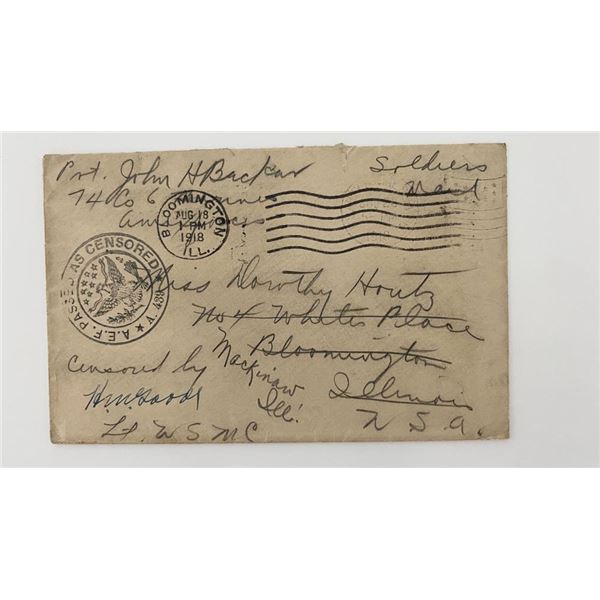 Pvt. John H Backar
74 Co 6
Soldiers
Mail
BLOOMINGTON
AUG 18
1 PM
1918
ILL.
A.E.F. PASSED AS CENSORED
Miss Dorothy Houtz
No 4 White Place
Bloomington
Illinois
U.S.A.
Mackinaw
Ill.
Censored by
H.M. Goode
Lt. U S M C